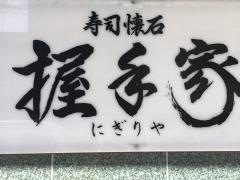 寿司懐石
握手家
にぎりや